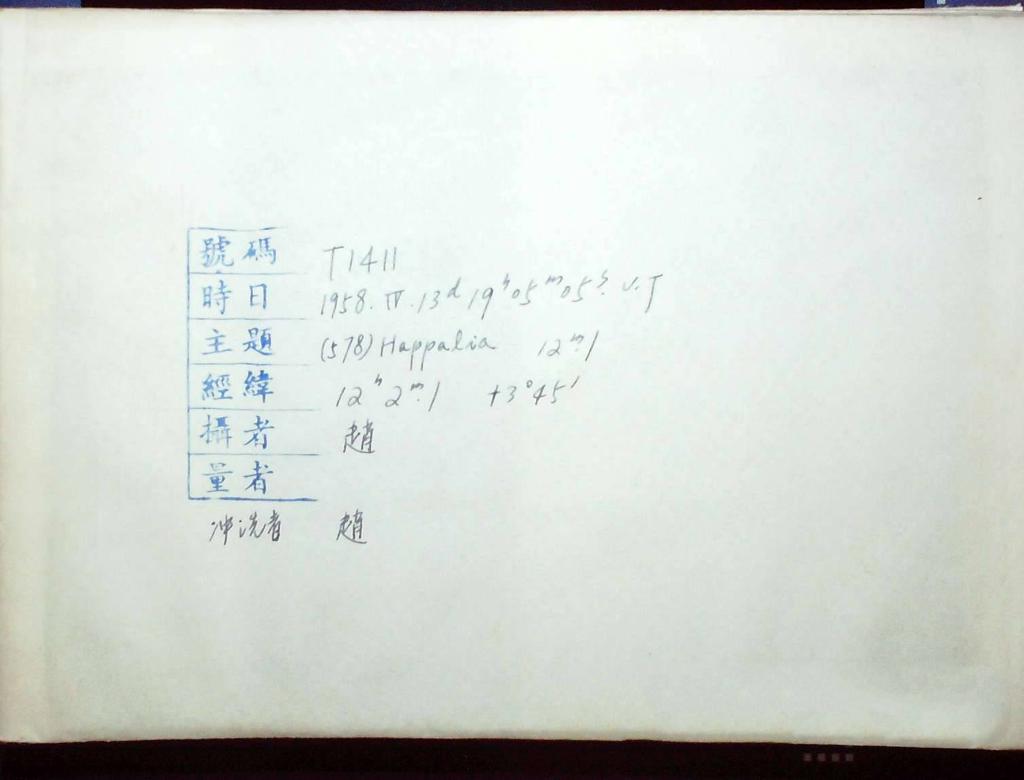 號碼 T1411
時日 1958.IV.13ᵈ 19ʰ05ᵐ05ˢ. U.T
主題 (578) Happalia 12ᵐ.1
經緯 12ʰ2ᵐ.1 +3°45′
攝者 趙
量者
冲洗者 趙